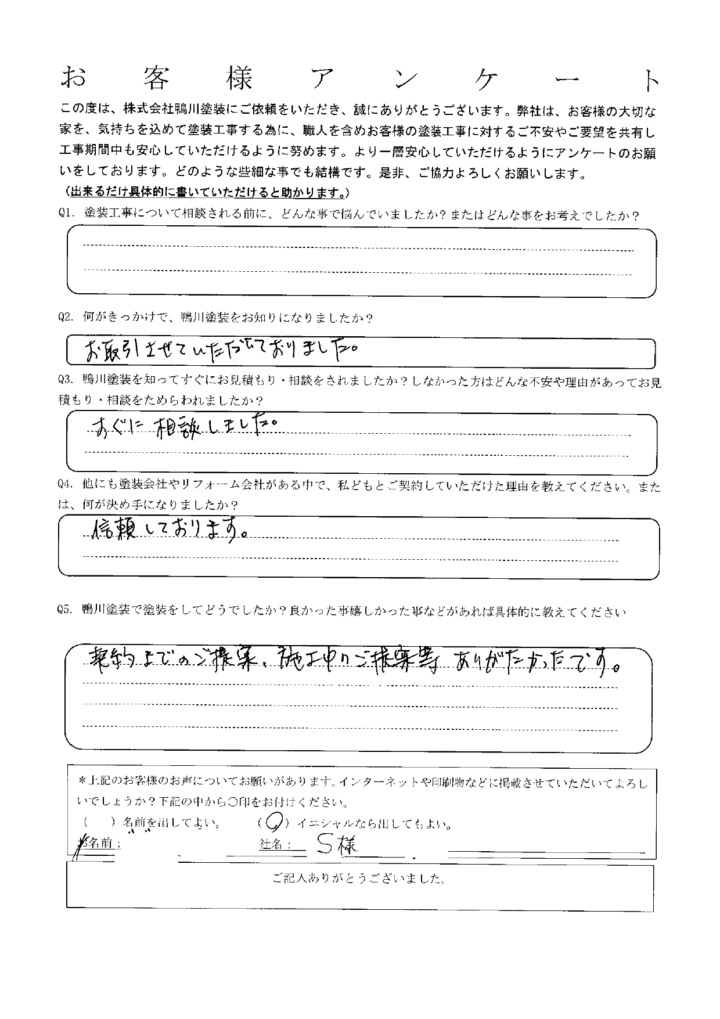 お客様アンケート
この度は、株式会社鴨川塗装にご依頼をいただき、誠にありがとうございます。弊社は、お客様の大切な
家を、気持ちを込めて塗装工事する為に、職人を含めお客様の塗装工事に対するご不安やご要望を共有し
工事期間中も安心していただけるように努めます。より一層安心していただけるようにアンケートのお願
いをしております。どのような些細な事でも結構です。是非、ご協力よろしくお願いします。
（出来るだけ具体的に書いていただけると助かります。）
Q1. 塗装工事について相談される前に、どんな事で悩んでいましたか？またはどんな事をお考えでしたか？
Q2. 何がきっかけで、鴨川塗装をお知りになりましたか？
お取引させていただいております。
Q3. 鴨川塗装を知ってすぐにお見積もり・相談をされましたか？しなかった方はどんな不安や理由があってお見
積もり・相談をためらわれましたか？
すぐに相談しました。
Q4. 他にも塗装会社やリフォーム会社がある中で、私どもとご契約していただけた理由を教えてください。また
は、何が決め手になりましたか？
信頼しております。
Q5. 鴨川塗装で塗装をしてどうでしたか？良かった事嬉しかった事などがあれば具体的に教えてください
契約までのご提案、施工中のご提案等ありがたかったです。
＊上記のお客様のお声についてお願いがあります。インターネットや印刷物などに掲載させていただいてよろし
いでしょうか？下記の中から〇印をお付けください。
（　）名前を出してよい。　（〇）イニシャルなら出してもよい。
お名前：　社名：　S様
ご記入ありがとうございました。